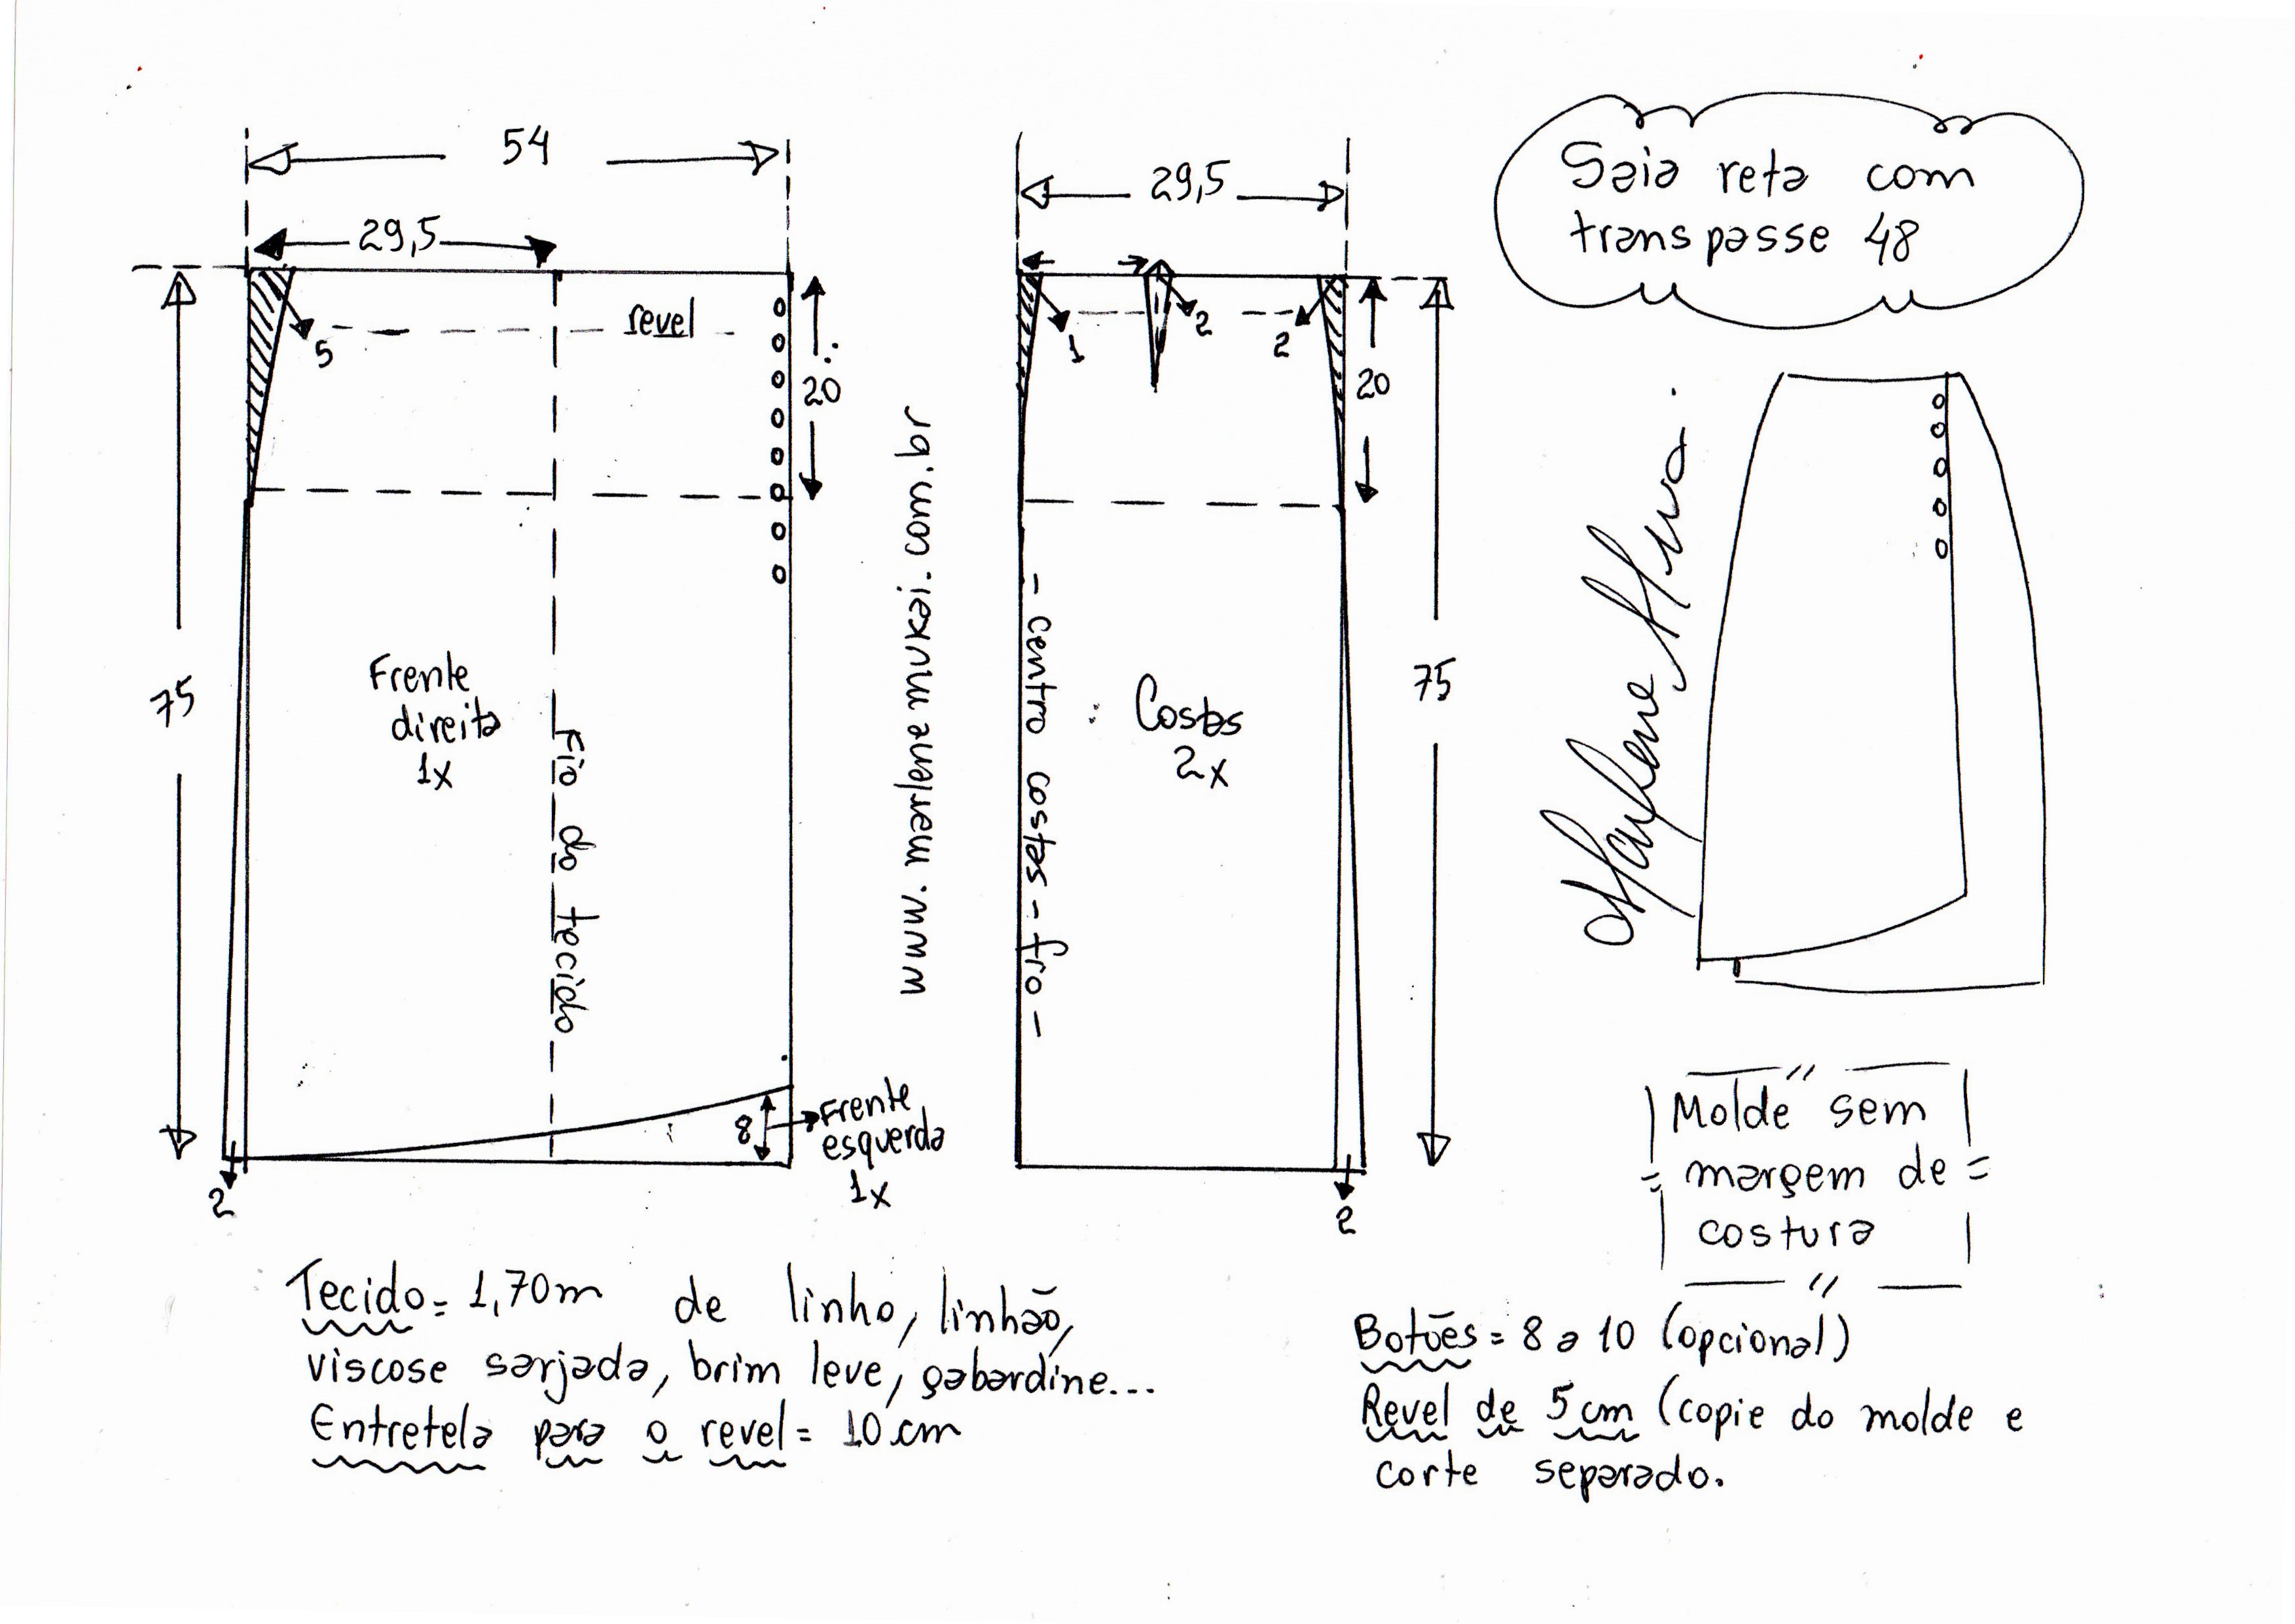 54
29,5
5
revel
20
75
Frente
direita
1x
Fio do tecido
8
Frente
esquerda
1x
2
www.marlene mukai.com.br
29,5
1
2
2
20
- centro costas - fio -
Costas
2x
75
2
Saia reta com
transpasse 48
Marlene Mukai
Molde sem
margem de
costura
Tecido = 1,70m de linho, linhão,
viscose sarjada, brim leve, gabardine...
Entretela para o revel = 10 cm
Botões = 8 a 10 (opcional)
Revel de 5 cm (copie do molde e
corte separado.